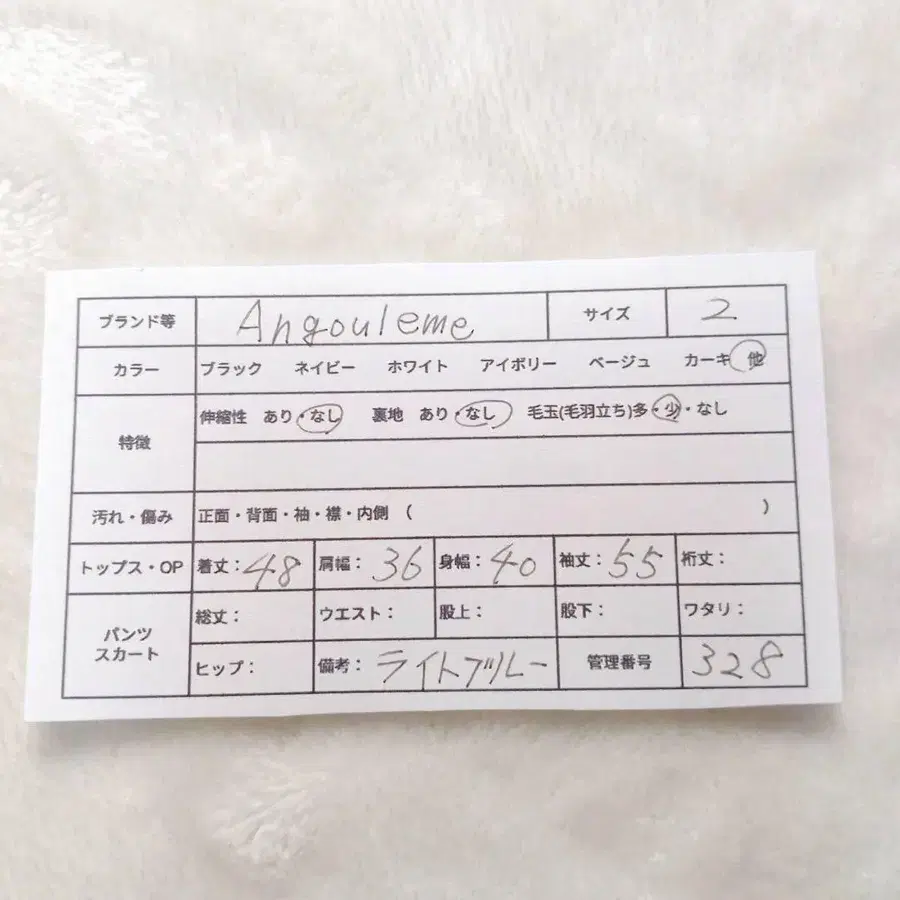 ブランド等 Angouleme サイズ 2
カラー ブラック ネイビー ホワイト アイボリー ベージュ カーキ 他
特徴 伸縮性 あり・なし 裏地 あり・なし 毛玉(毛羽立ち)多・少・なし
汚れ・傷み 正面・背面・袖・襟・内側 ( )
トップス・OP 着丈:48 肩幅:36 身幅:40 袖丈:55 裄丈:
パンツ
スカート
総丈: ウエスト: 股上: 股下: ワタリ:
ヒップ: 備考:ライトブルー 管理番号 328